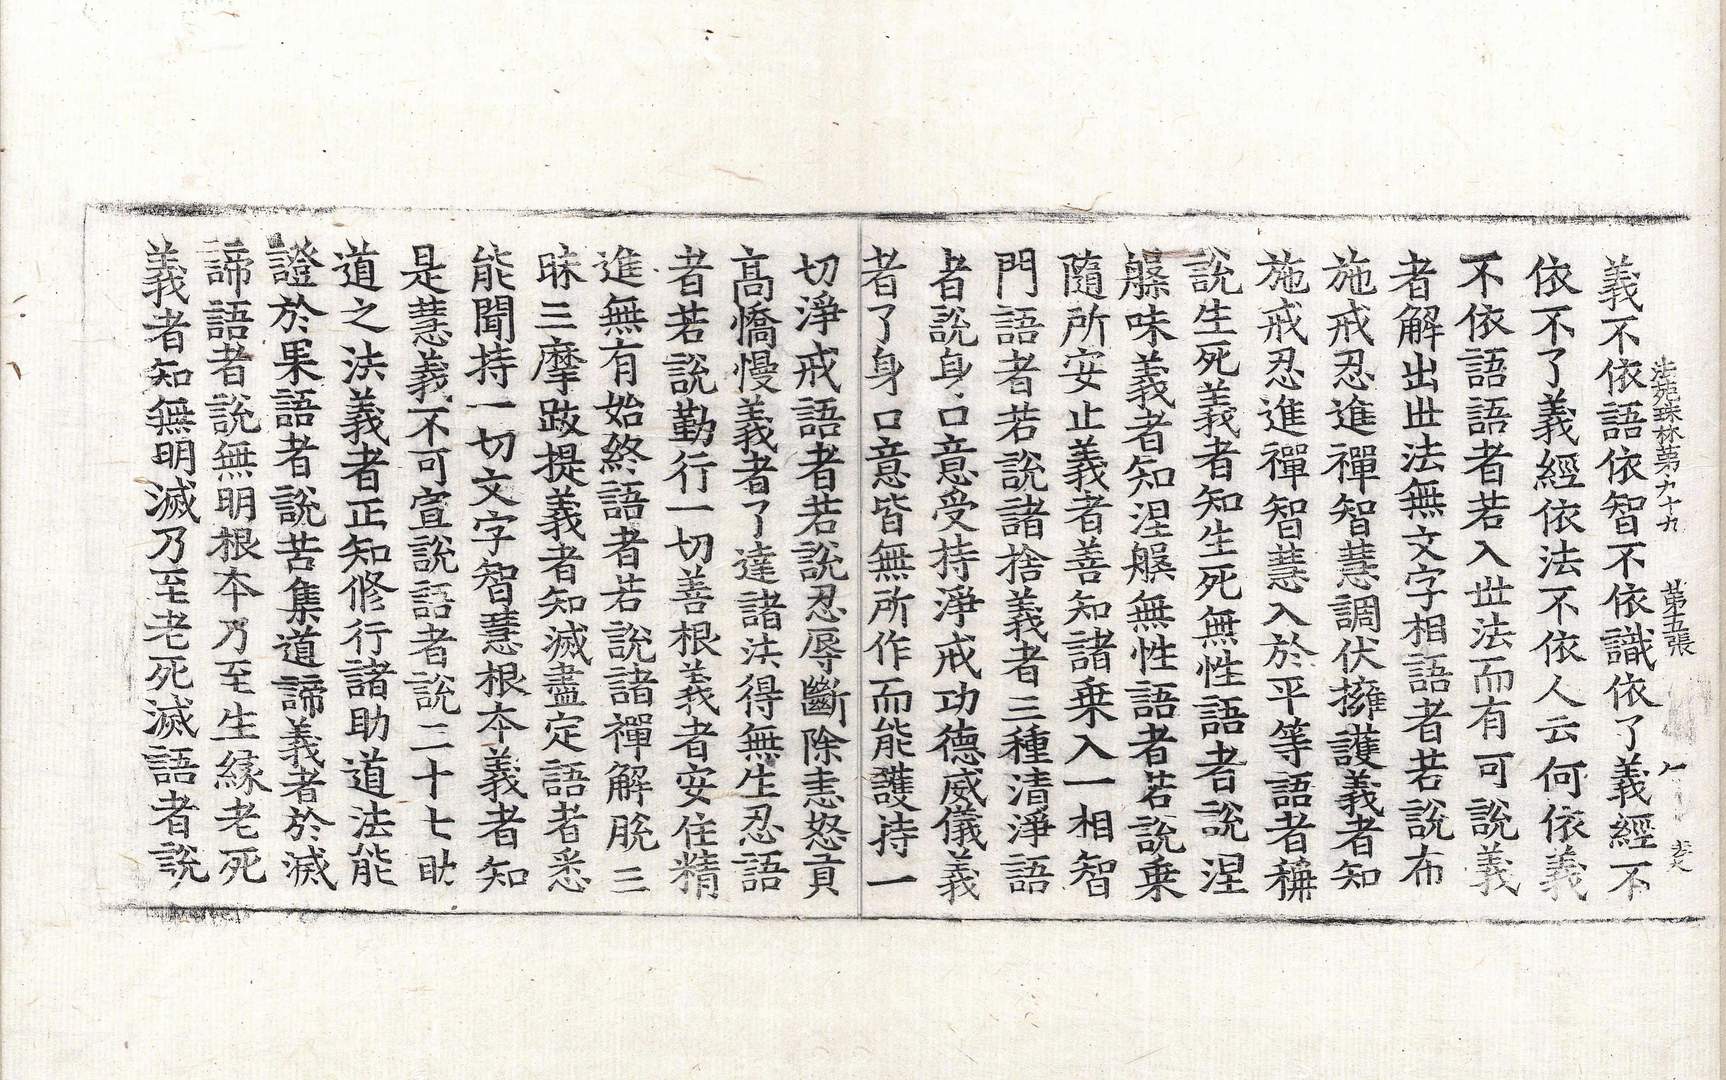 法苑珠林第九十九　第五張
義不依語依智不依識依了義經不
依不了義經依法不依人云何依義
不依語語者若入世法而有可說義
者解出世法無文字相語者若說布
施戒忍進禪智慧調伏擁護義者知
施戒忍進禪智慧入於平等語者稱
說生死義者知生死無性語者說涅
槃味義者知涅槃無性語者若說乗
隨所安止義者善知諸乗入一相智
門語者若說諸捨義者三種清淨語
者說身口意受持淨戒功德威儀義
者了身口意皆無所作而能護持一
切淨戒語者若說忍辱斷除恚怒貢
高憍慢義者了達諸法得無生忍語
者若說勤行一切善根義者安住精
進無有始終語者若說諸禪解脫三
昧三摩跋提義者知滅盡定語者悉
能聞持一切文字智慧根本義者知
是慧義不可宣說語者說三十七助
道之法義者正知修行諸助道法能
證於果語者說苦集道諦義者於滅
諦語者說無明根本乃至生緣老死
義者知無明滅乃至老死滅語者說